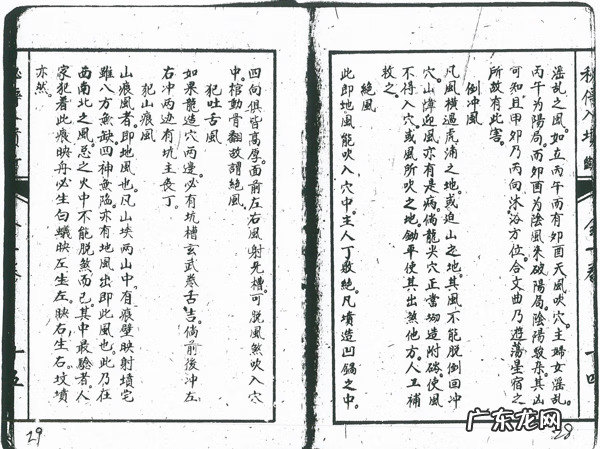 淫乱之風。如立丙午而有卯酉天風吹穴。主婦女淫乱。
丙午为陽局。而卯酉为陰風来破陽局。陰陽駁杂。其凶
可知。且甲卯乃丙向沐浴方位。合文曲乃遊蕩星宿之
所。故有此害。
倒冲風
凡風橫過虎浦之地。或迫山之地。其風不能脱。倒回冲
穴。山嶂迎風亦有是病。倘龍尖穴正當坳造附砖。使風
不得入穴。或風所吹之地鋤平使其出煞他方。人工補
救之。
絕風
此即地風能吹入穴中。主人丁敗絕。凡墳造凹鍋之中。
四向俱皆高厚。面前左右風射先槽。可脱風煞吹入穴
中。棺動骨翻。故謂絕風。
犯吐舌風
如果龍造穴两邊。必有坑槽玄武卷舌吉。倘前後冲左
右冲两边有坑主丧丁。
犯山痕風
山痕風者。即地風也。凡山峡两山中。有痕壁映射墳宅
雖八方無缺。四神無陷。亦有地風出即此風也。此乃在
西南北之風。忌之火中不能脱煞而已。其中最驗者。人
家犯着此痕映舟必生白蟻。映左生左。映右生右。坟墳
亦然。
十四
十五
28
29
广东龙网